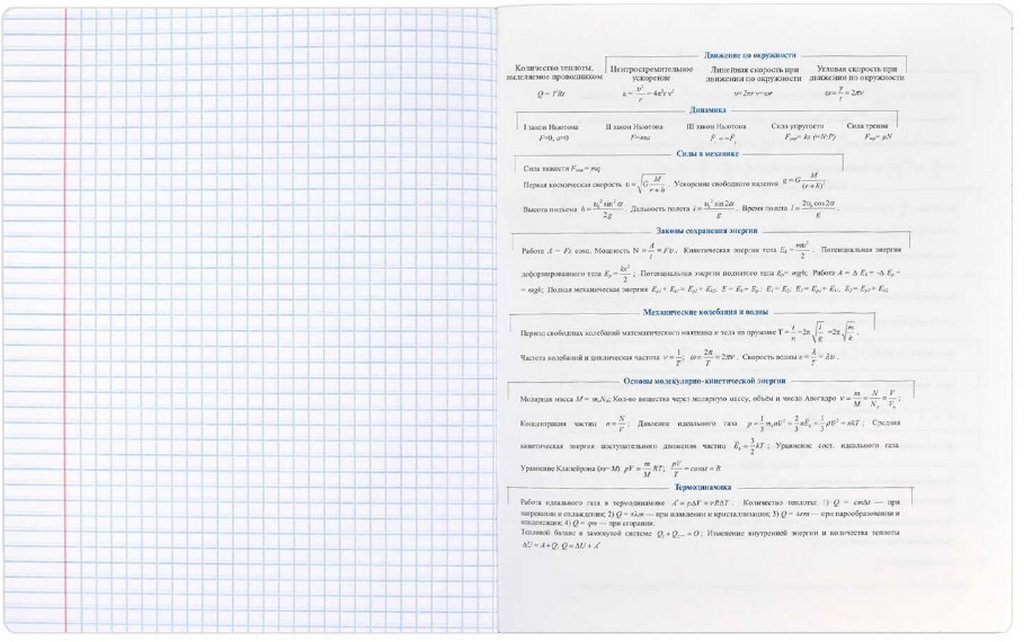 Движение по окружности
Количество теплоты, выделяемое проводником
Центростремительное ускорение
Линейная скорость при движении по окружности
Угловая скорость при движении по окружности
Q = I²Rt
a = υ²/r = 4π²r ν²
υ=2πr ν=ωr
ω = φ/t = 2πν
Динамика
I закон Ньютона II закон Ньютона III закон Ньютона Сила упругости Сила трения
F=0, a=0 F=ma
Силы в механике
Сила тяжести
Первая космическая скорость υ = √(G M/(r+h)) . Ускорение свободного падения
Высота подъема h = υ₀² sin² α/2g . Дальность полета l = υ₀² sin 2α/g . Время полета
Законы сохранения энергии
Работа A = Fs cosα. Мощность N = A/t = Fυ. Кинетическая энергия тела Eₖ = mυ²/2 . Потенциальная энергия
деформированного тела Eₚ = kx²/2 ; Потенциальная энергия поднятого тела Eₚ= mgh; Работа A = Δ Eₖ = -Δ Eₚ =
= mgh; Полная механическая энергия
Механические колебания и волны
Период свободных колебаний математического маятника и тела на пружине T = t/n =2π √(l/g) =2π √(m/k) .
Частота колебаний и циклическая частота ν = 1/T ; ω = 2π/T = 2πν . Скорость волны
Основы молекулярно-кинетической энергии
Молярная масса Кол-во вещества через молярную массу, объём и число Авогадро ν = m/M = N/Nₐ = V/Vₐ ;
Концентрация частиц n = N/V ; Давление идеального газа = nkT ; Средняя
кинетическая энергия поступательного движения частиц Eₖ = 3/2 kT ; Уравнение сост. идеального газа.
Уравнение Клапейрона (m=M) pV = m/M RT; pV/T = const = R
Термодинамика
Работа идеального газа в термодинамике A' = pΔV = νRΔT . Количество теплоты: 1) Q = cmΔt — при
нагревании и охлаждении; 2) Q = ±λm — при плавлении и кристаллизации; 3) Q = ±rm — при парообразовании и
конденсации; 4) Q = qm — при сгорании.
Тепловой баланс в замкнутой системе Q₁ + Q₂... = O ; Изменение внутренней энергии и количества теплоты
ΔU = A + Q; Q = ΔU + A'